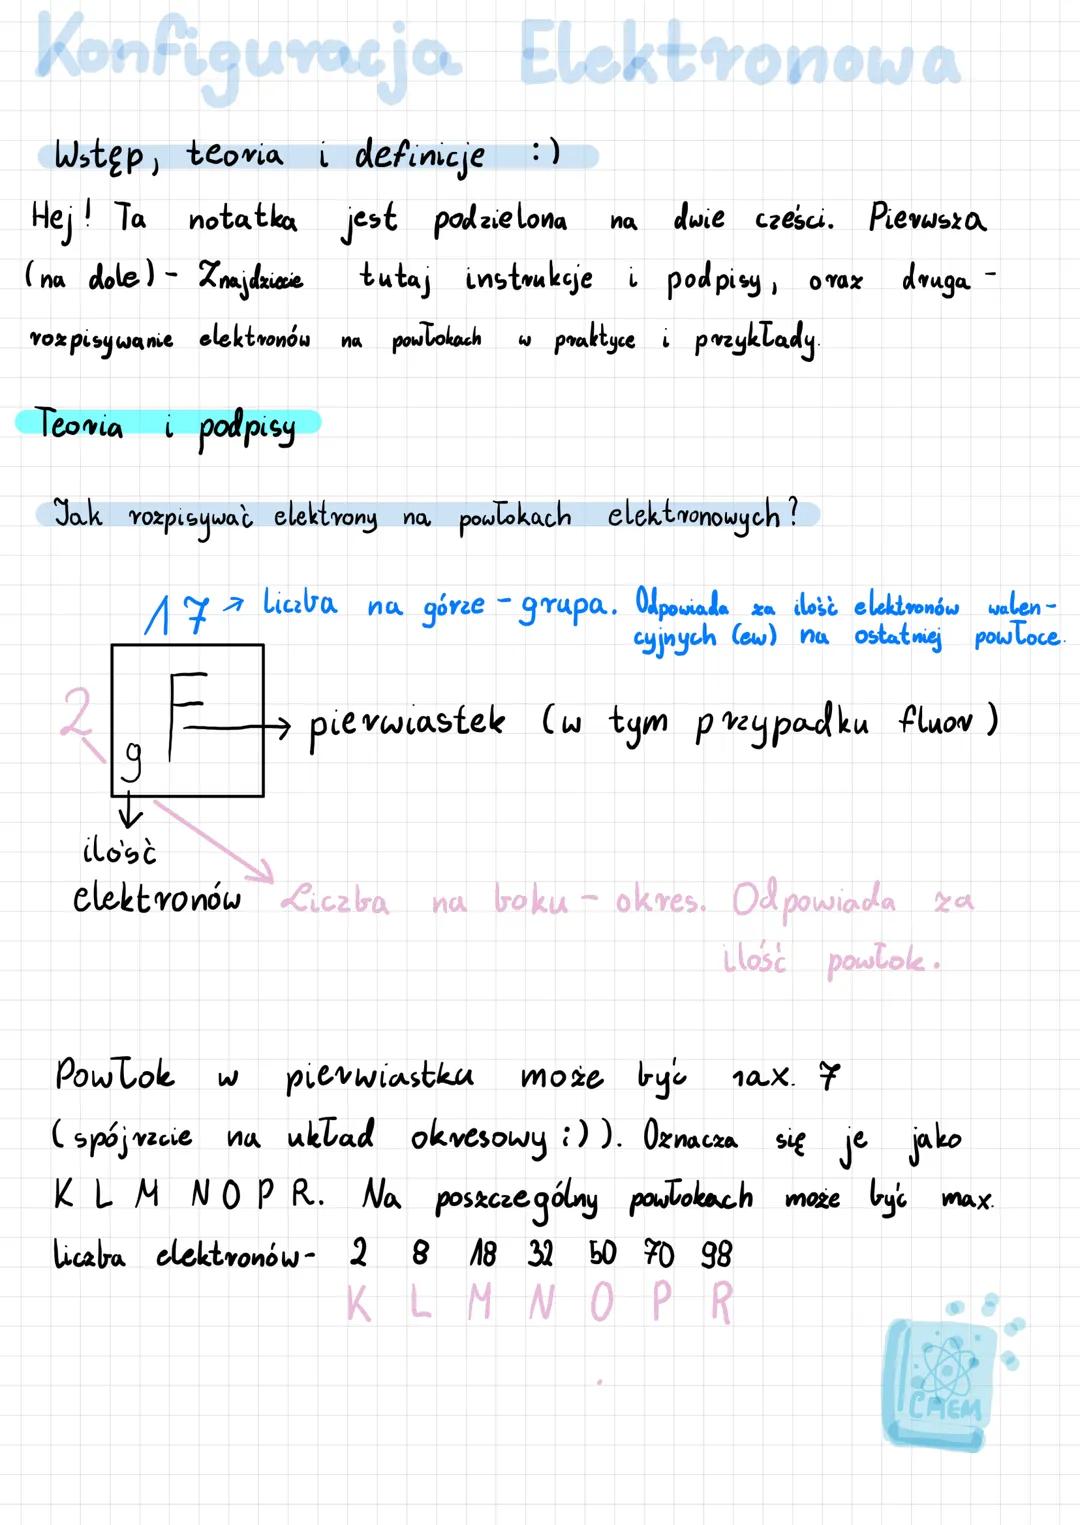 Konfiguracja Elektronowa
Wstęp, teoria i definicje :)
Hej! Ta notatka jest podzielona na dwie cześci. Pierwsza
(na dole) - Znajdziecie tutaj instrukcje i podpisy, oraz druga -
rozpisywanie elektronów na powłokach w praktyce i przykłady.
Teoria i podpisy
Jak rozpisywać elektrony na powłokach elektronowych?
17 → Liczba na górze - grupa. Odpowiada za ilość elektronów walen-
cyjnych (ew) na ostatniej powłoce.
2
F → pierwiastek (w tym przypadku fluor)
9
ilość
elektronów
Liczba na boku - okres. Odpowiada za
ilość powłok.
Powłok w pierwiastku może być max. 7
(spójrzcie na układ okresowy :)). Oznacza się je jako
K L M N O P R. Na poszczególny powłokach może być max.
liczba elektronów - 2 8 18 32 50 70 98
K L M N O P R
CHEM